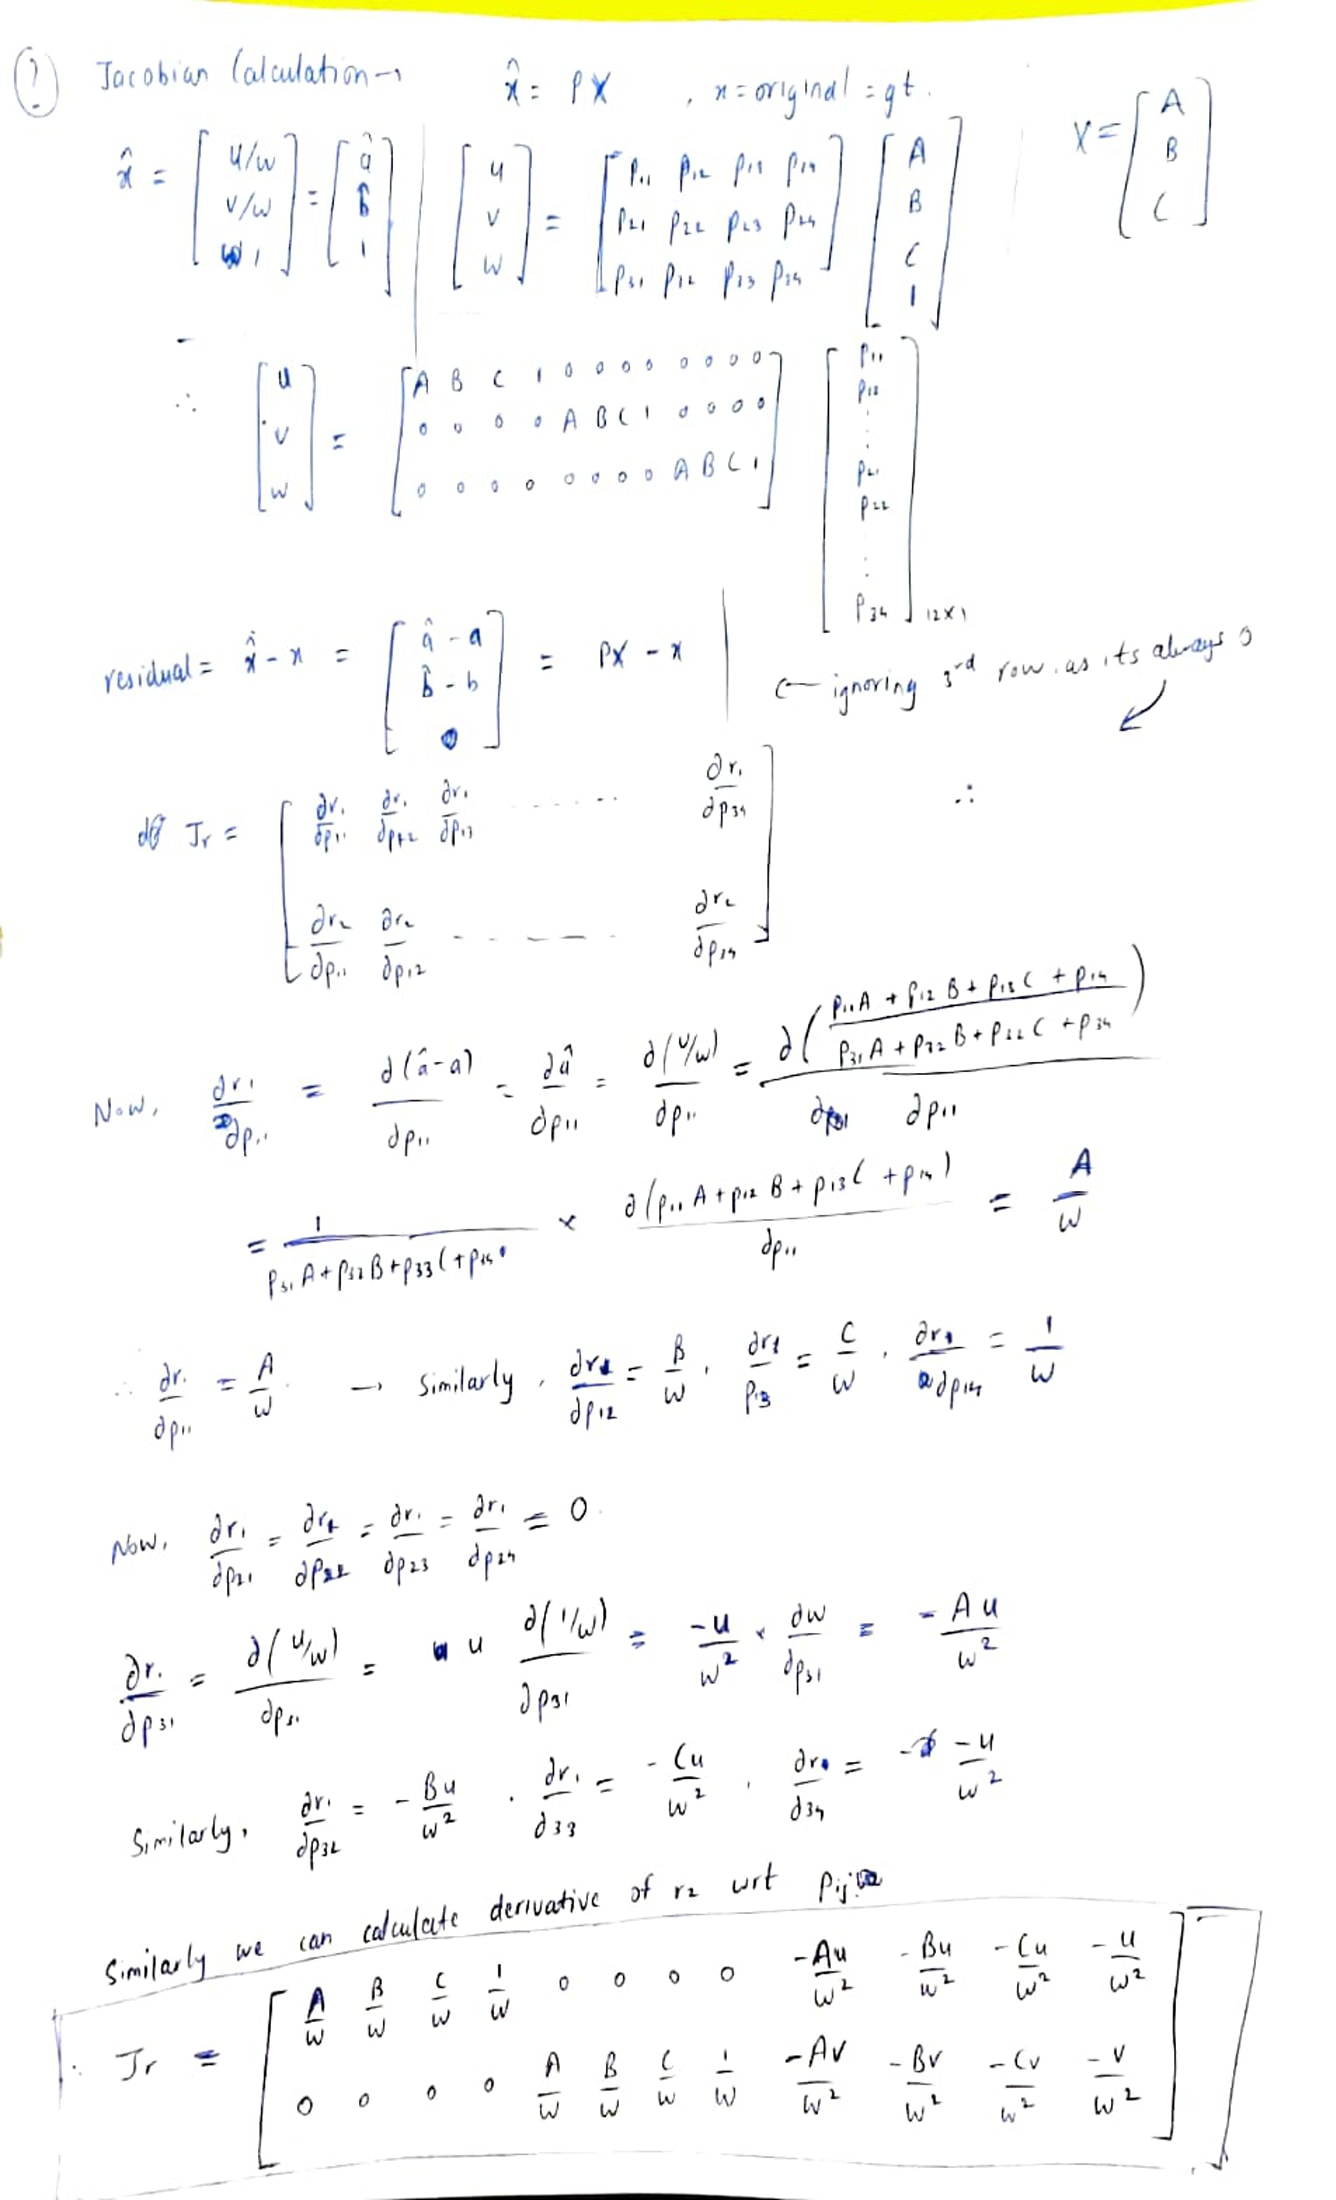 ① Jacobian Calculation → x̂ = PX , x = original = gt.
x̂ = [u/w v/w 1] = [â b̂ 1] | [u v w] = [p11 p12 p13 p14 p21 p22 p23 p24 p31 p32 p33 p34] [A B C 1] X = [A B C]
∴ [u v w] = [A B C 1 0 0 0 0 0 0 0 0 0 0 0 0 A B C 1 0 0 0 0 0 0 0 0 0 0 0 0 A B C 1] [p11 p12 ⋮ p21 p22 ⋮ p34] 12×1
residual = x̂ - x = [â - a b̂ - b 0] = PX - x | ← ignoring 3rd row. as its always 0
Jr = [∂r1/∂p11 ∂r1/∂p12 ∂r1/∂p13 ...... ∂r1/∂p34 ∴
∂r2/∂p11 ∂r2/∂p12 - - - - ∂r2/∂p34]
Now, ∂r1/∂p11 = ∂(â-a)/∂p11 = ∂â/∂p11 = ∂(u/w)/∂p11 = ∂(p11A + p12B + p13C + p14 / p31A + p32B + p33C + p34)/∂p11
= 1/(p31A + p32B + p33C + p34) × ∂(p11A + p12B + p13C + p14)/∂p11 = A/w
∴ ∂r1/∂p11 = A/w. → Similarly, ∂r1/∂p12 = B/w, ∂r1/p13 = C/w, ∂r1/∂p14 = 1/w
Now, ∂r1/∂p21 = ∂r1/∂p22 = ∂r1/∂p23 = ∂r1/∂p24 = 0.
∂r1/∂p31 = ∂(u/w)/∂p31 = u ∂(1/w)/∂p31 = -u/w² × ∂w/∂p31 = -Au/w²
Similarly, ∂r1/∂p32 = -Bu/w² . ∂r1/∂33 = -Cu/w² , ∂r1/∂34 = -u/w²
Similarly we can calculate derivative of r2 wrt Pij
∴ Jr = [A/w B/w C/w 1/w 0 0 0 0 -Au/w² -Bu/w² -Cu/w² -u/w²
0 0 0 0 A/w B/w C/w 1/w -Av/w² -Bv/w² -Cv/w² -v/w²]